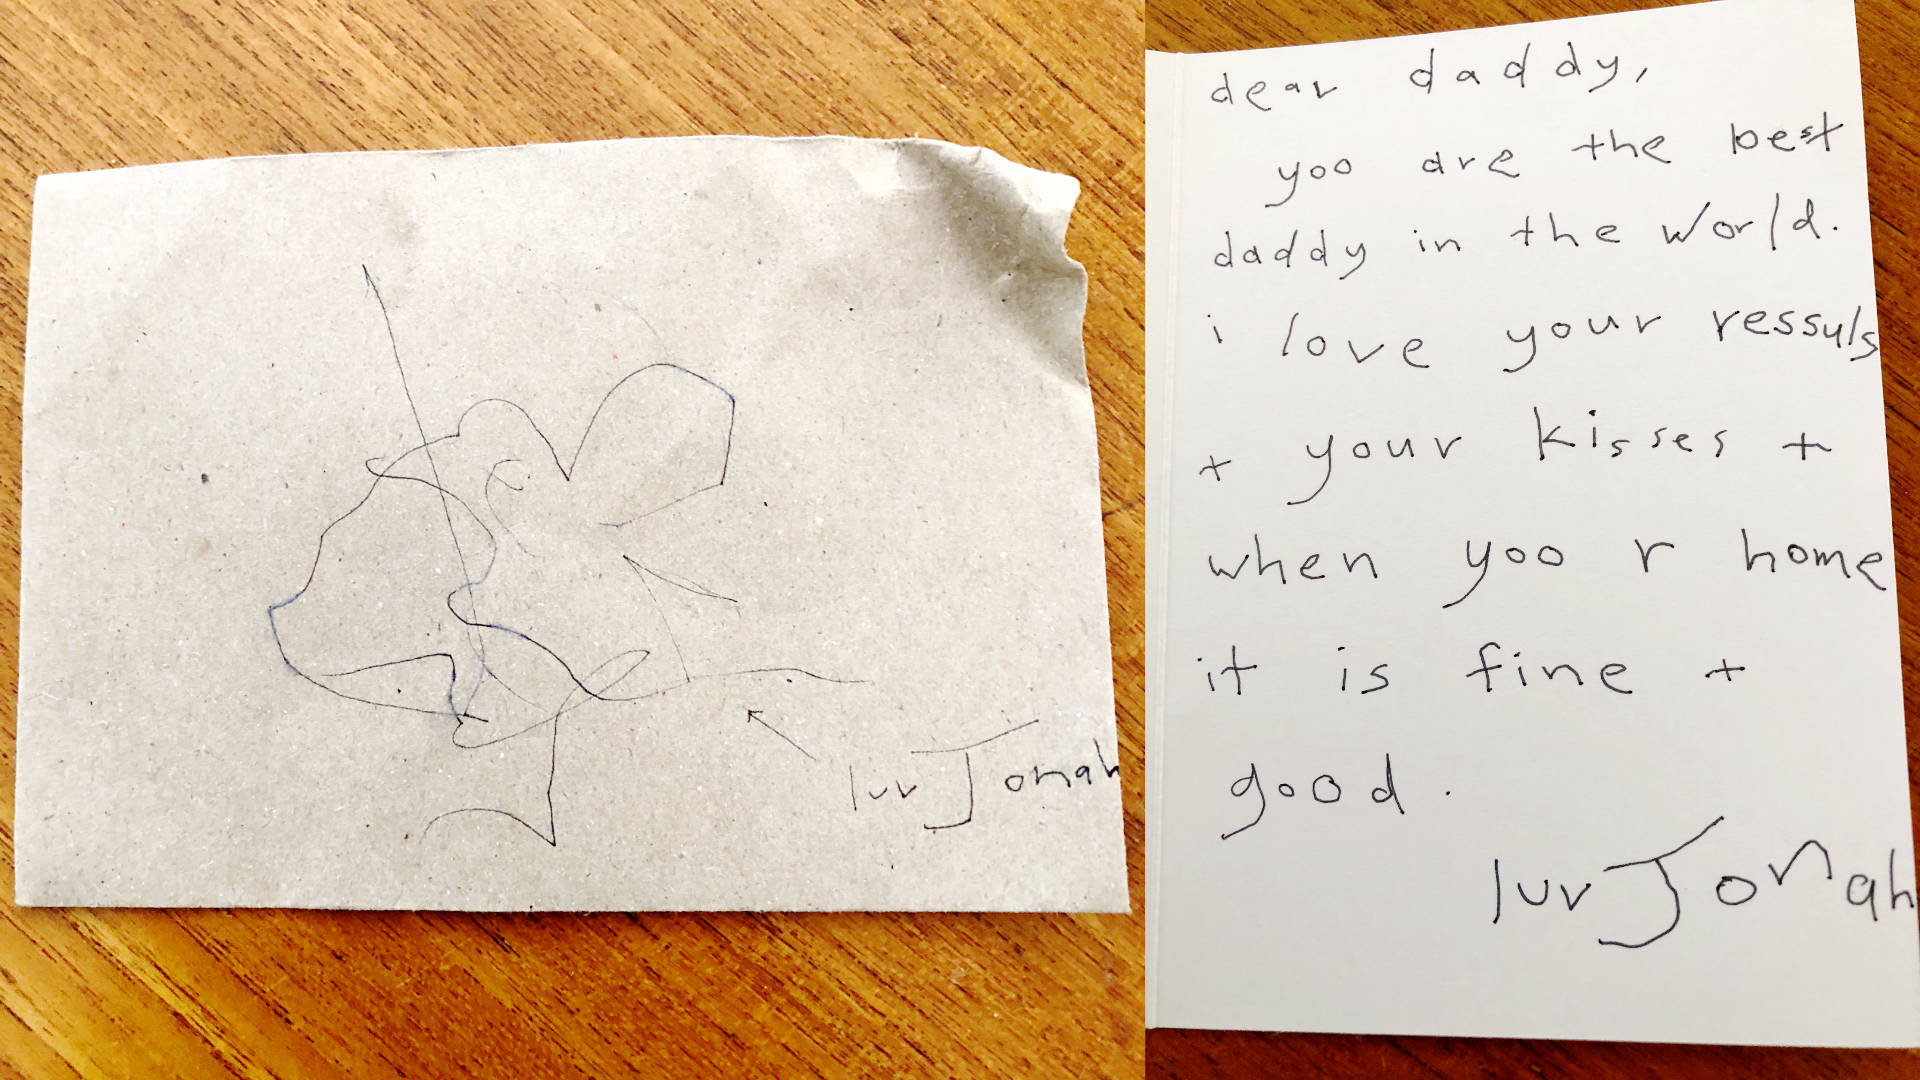 luv Jonah
dear daddy,
yoo are the best
daddy in the world.
i love your ressuls
+ your kisses +
when yoo r home
it is fine +
good.
luv Jonah